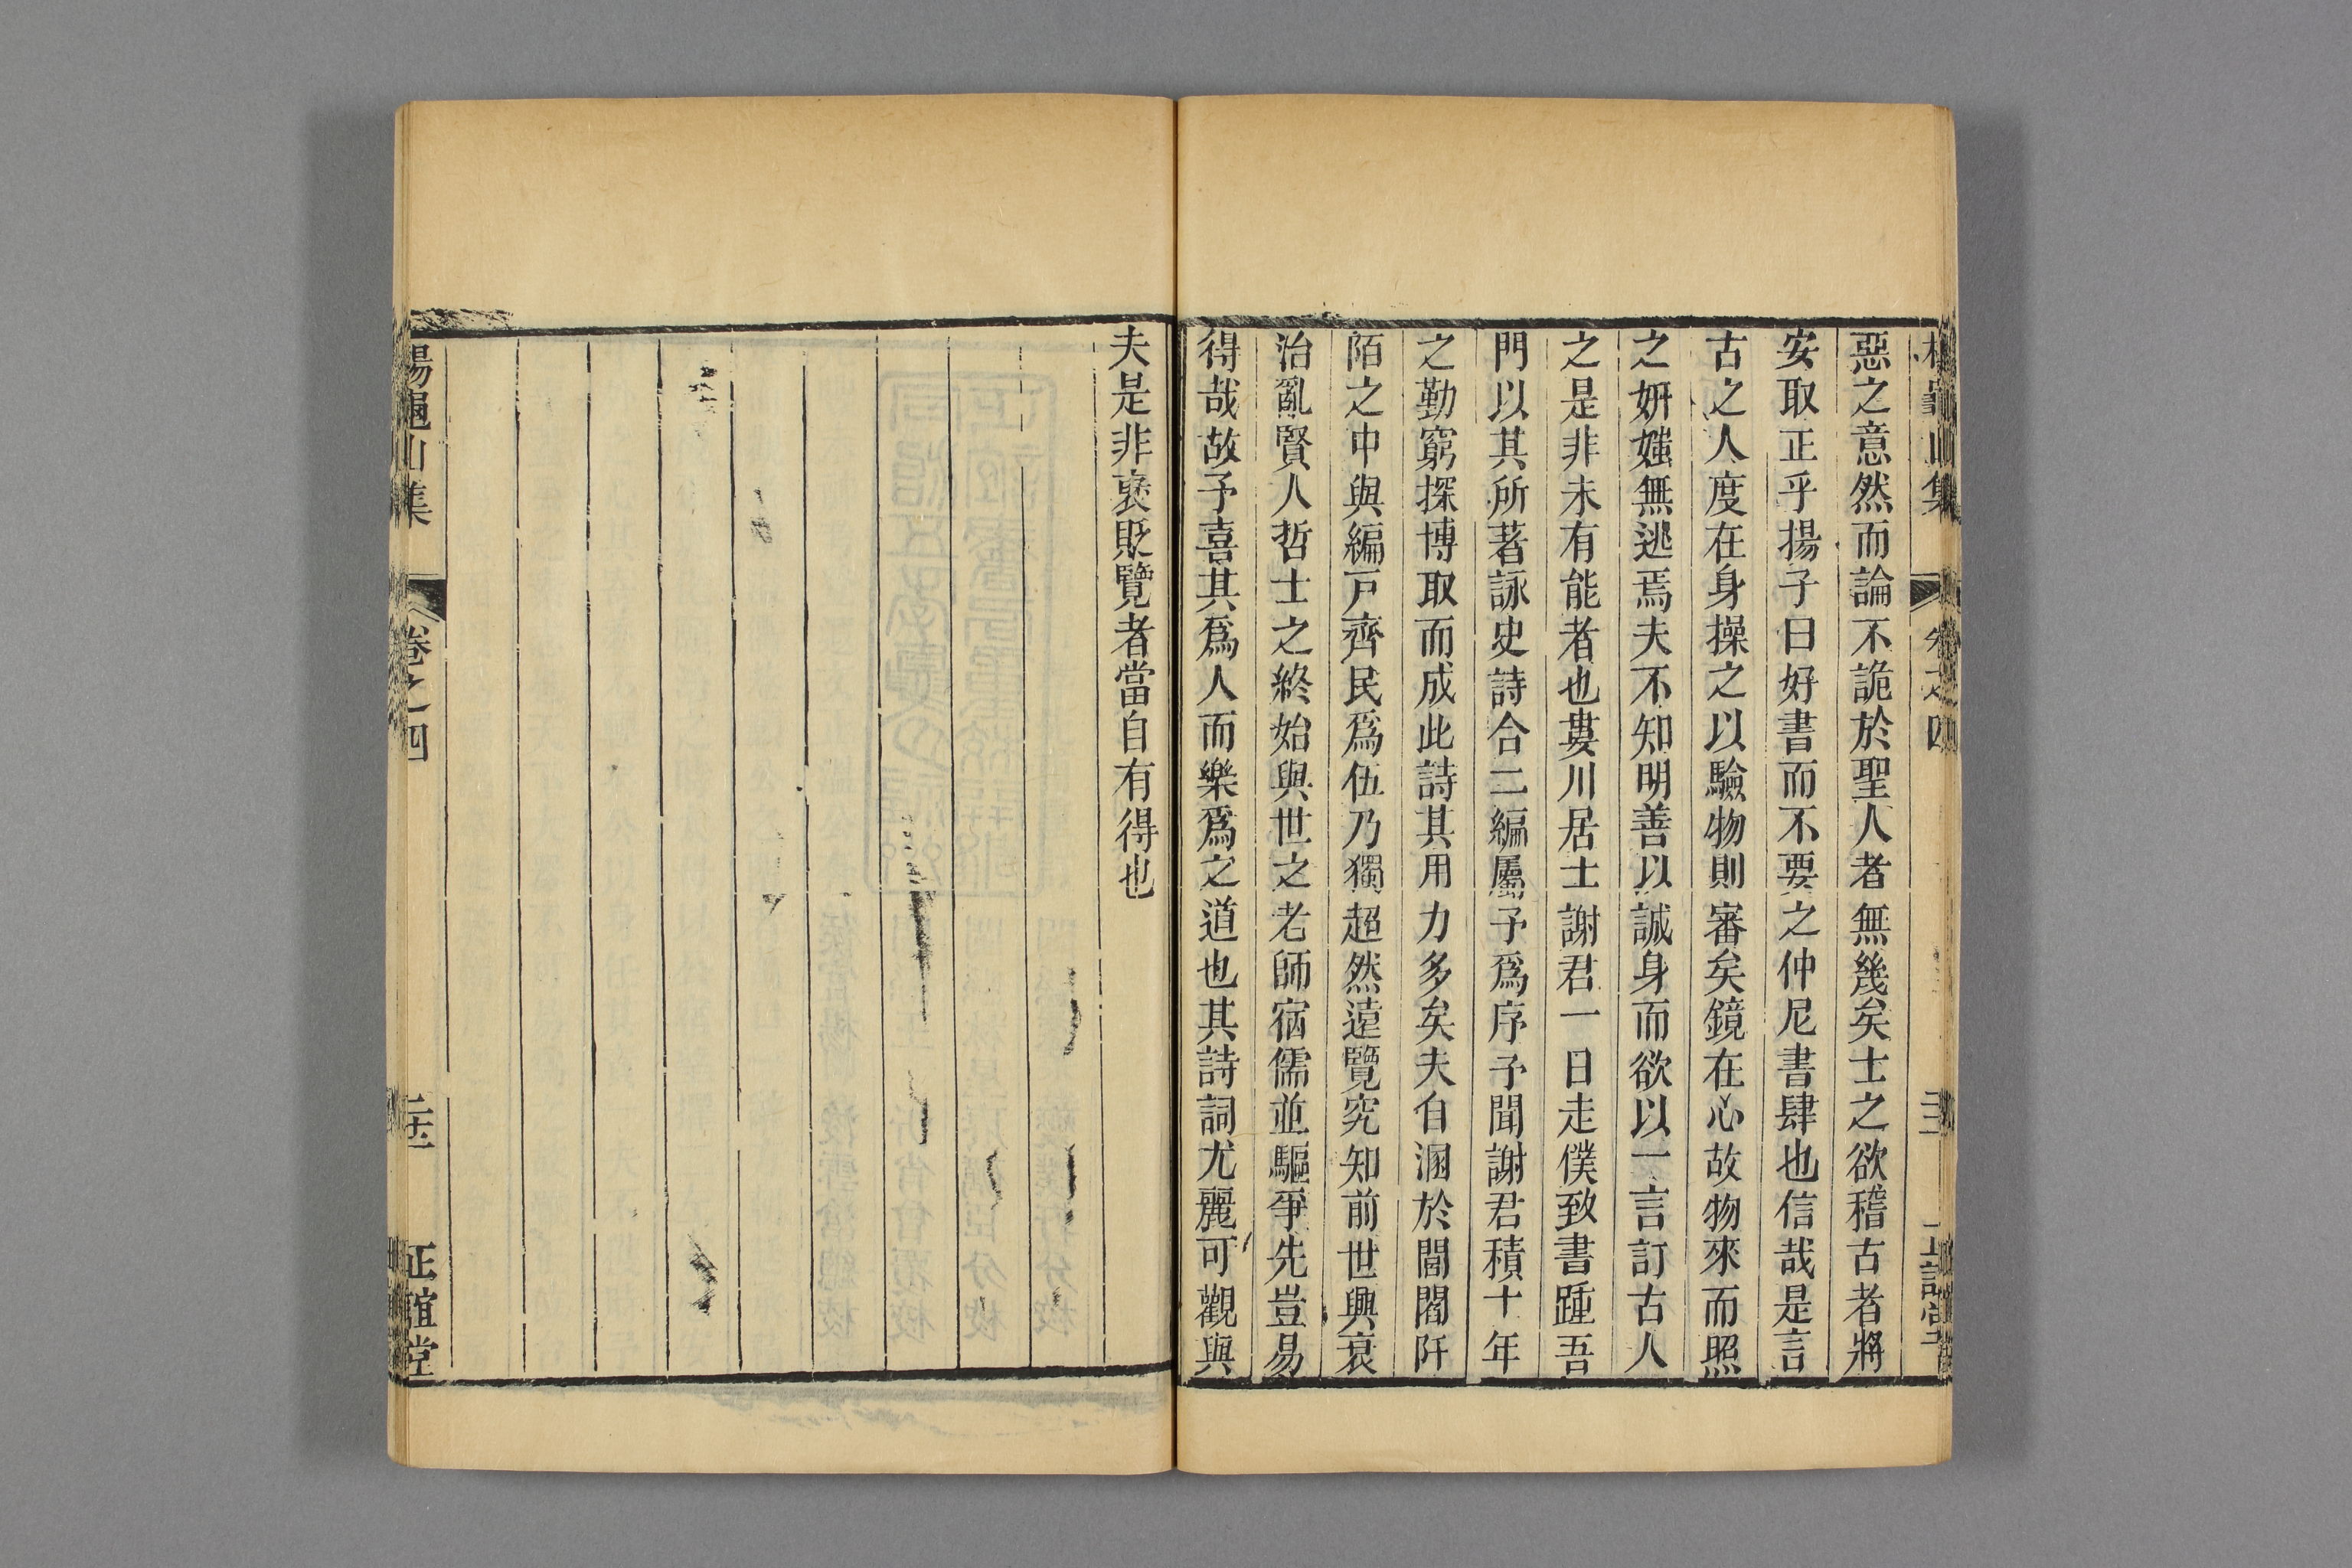 惡之意然而論不詭於聖人者無幾矣士之欲稽古者將
安取正乎揚子曰好書而不要之仲尼書肆也信哉是言
古之人度在身操之以驗物則審矣鏡在心故物來而照
之妍媸無逃焉夫不知明善以誠身而欲以一言訂古人
之是非未有能者也婁川居士謝君一日走僕致書踵吾
門以其所著詠史詩合二編屬予爲序予聞謝君積十年
之勤窮探博取而成此詩其用力多矣夫自溷於閭閻阡
陌之中與編戸齊民爲伍乃獨超然遠覽究知前世興衰
治亂賢人哲士之終始與世之老師宿儒並驅爭先豈易
得哉故予喜其爲人而樂爲之道也其詩詞尤麗可觀與
夫是非襃貶覽者當自有得也
楊龜山集
卷之四
正誼堂